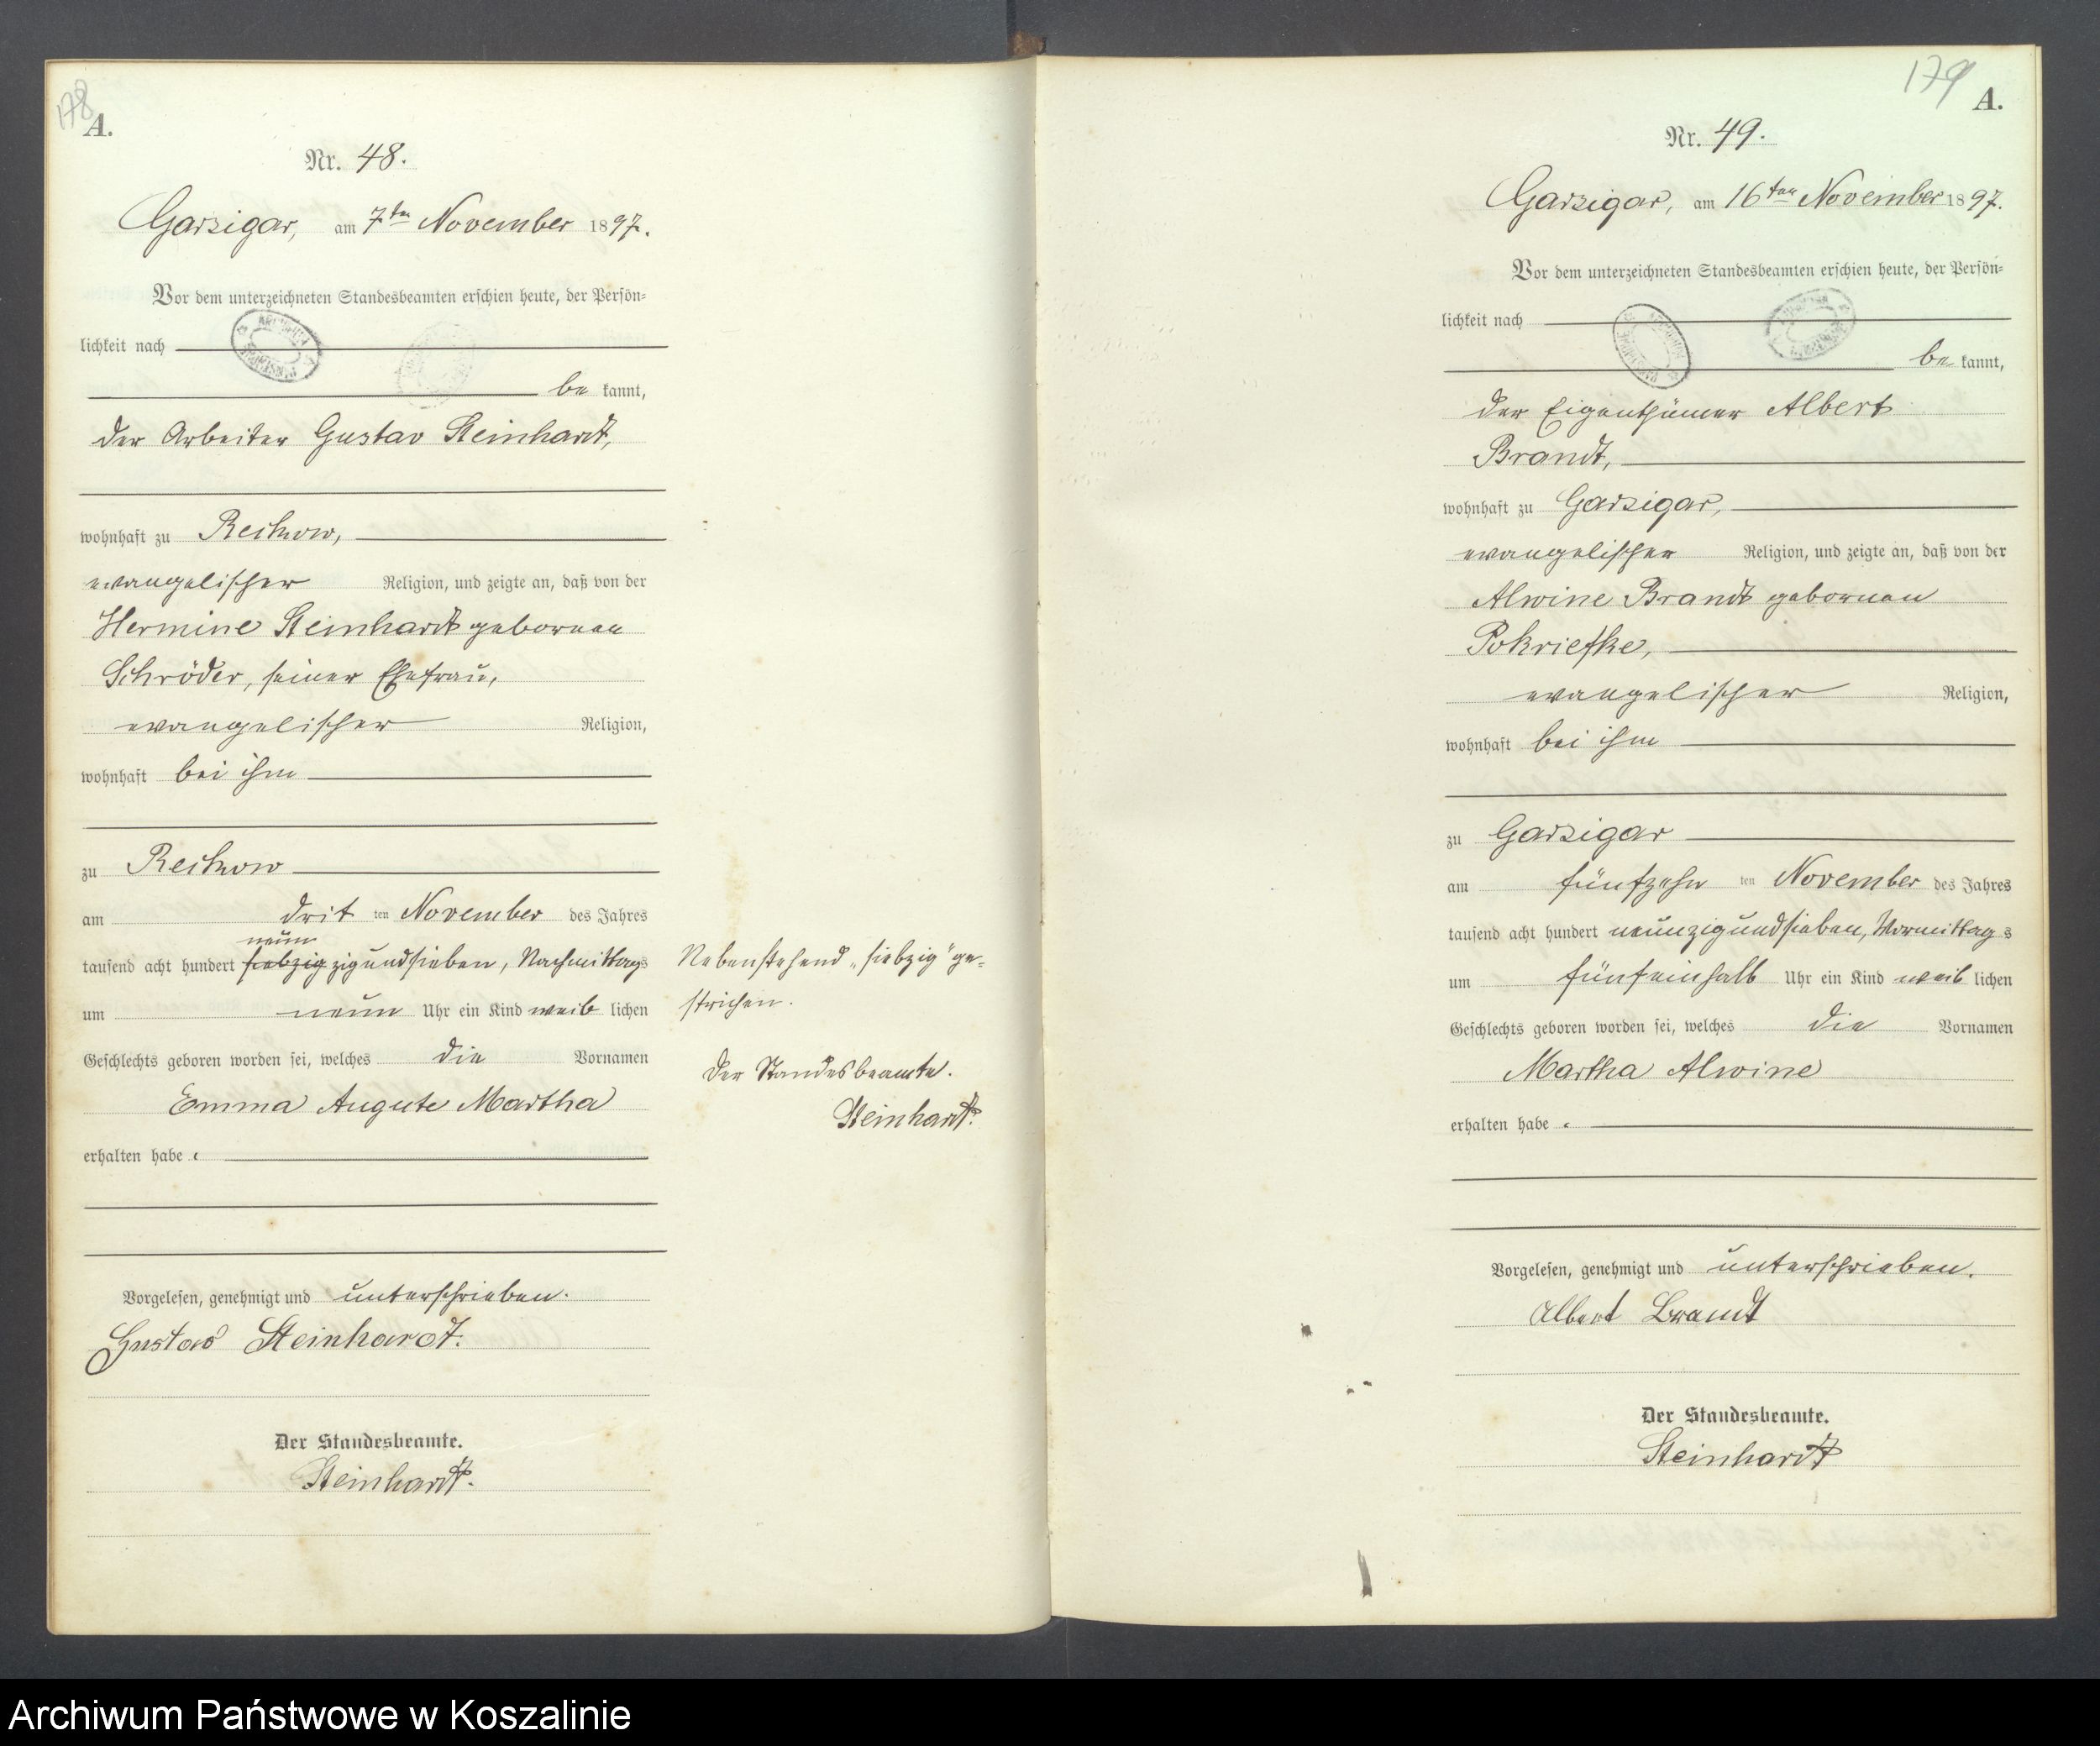 178
A.
Nr. 48.
Garzigar, am 7ten November 1897.
Vor dem unterzeichneten Standesbeamten erschien heute, der Persön-
lichkeit nach
be kannt,
der Arbeiter Gustav Steinhardt,
wohnhaft zu Reckow,
evangelischer Religion, und zeigte an, daß von der
Hermine Steinhardt gebornen
Schröder, seiner Ehefrau,
evangelischer Religion,
wohnhaft bei ihm
zu Reckow
am drit ten November des Jahres
neun
tausend acht hundert siebzig zigundsieben, Nachmittags
um neun Uhr ein Kind weib lichen
Geschlechts geboren worden sei, welches die Vornamen
Emma Augute Martha
erhalten habe.
Vorgelesen, genehmigt und unterschrieben.
Gustav Steinhardt.
Der Standesbeamte.
Steinhardt.
Nebenstehend „siebzig" ge-
strichen.
Der Standesbeamte.
Steinhardt.
179
A.
Nr. 49.
Garzigar, am 16ten November 1897.
Vor dem unterzeichneten Standesbeamten erschien heute, der Persön-
lichkeit nach
be kannt,
der Eigenthümer Albert
Brandt,
wohnhaft zu Garzigar,
evangelischer Religion, und zeigte an, daß von der
Alwine Brandt gebornen
Pokriefke,
evangelischer Religion,
wohnhaft bei ihm
zu Garzigar
am fünfzehn ten November des Jahres
tausend acht hundert neunzigundsieben, Vormittag s
um fünfeinhalb Uhr ein Kind weib lichen
Geschlechts geboren worden sei, welches die Vornamen
Martha Alwine
erhalten habe.
Vorgelesen, genehmigt und unterschrieben.
Albert Brandt
Der Standesbeamte.
Steinhardt
Archiwum Państwowe w Koszalinie